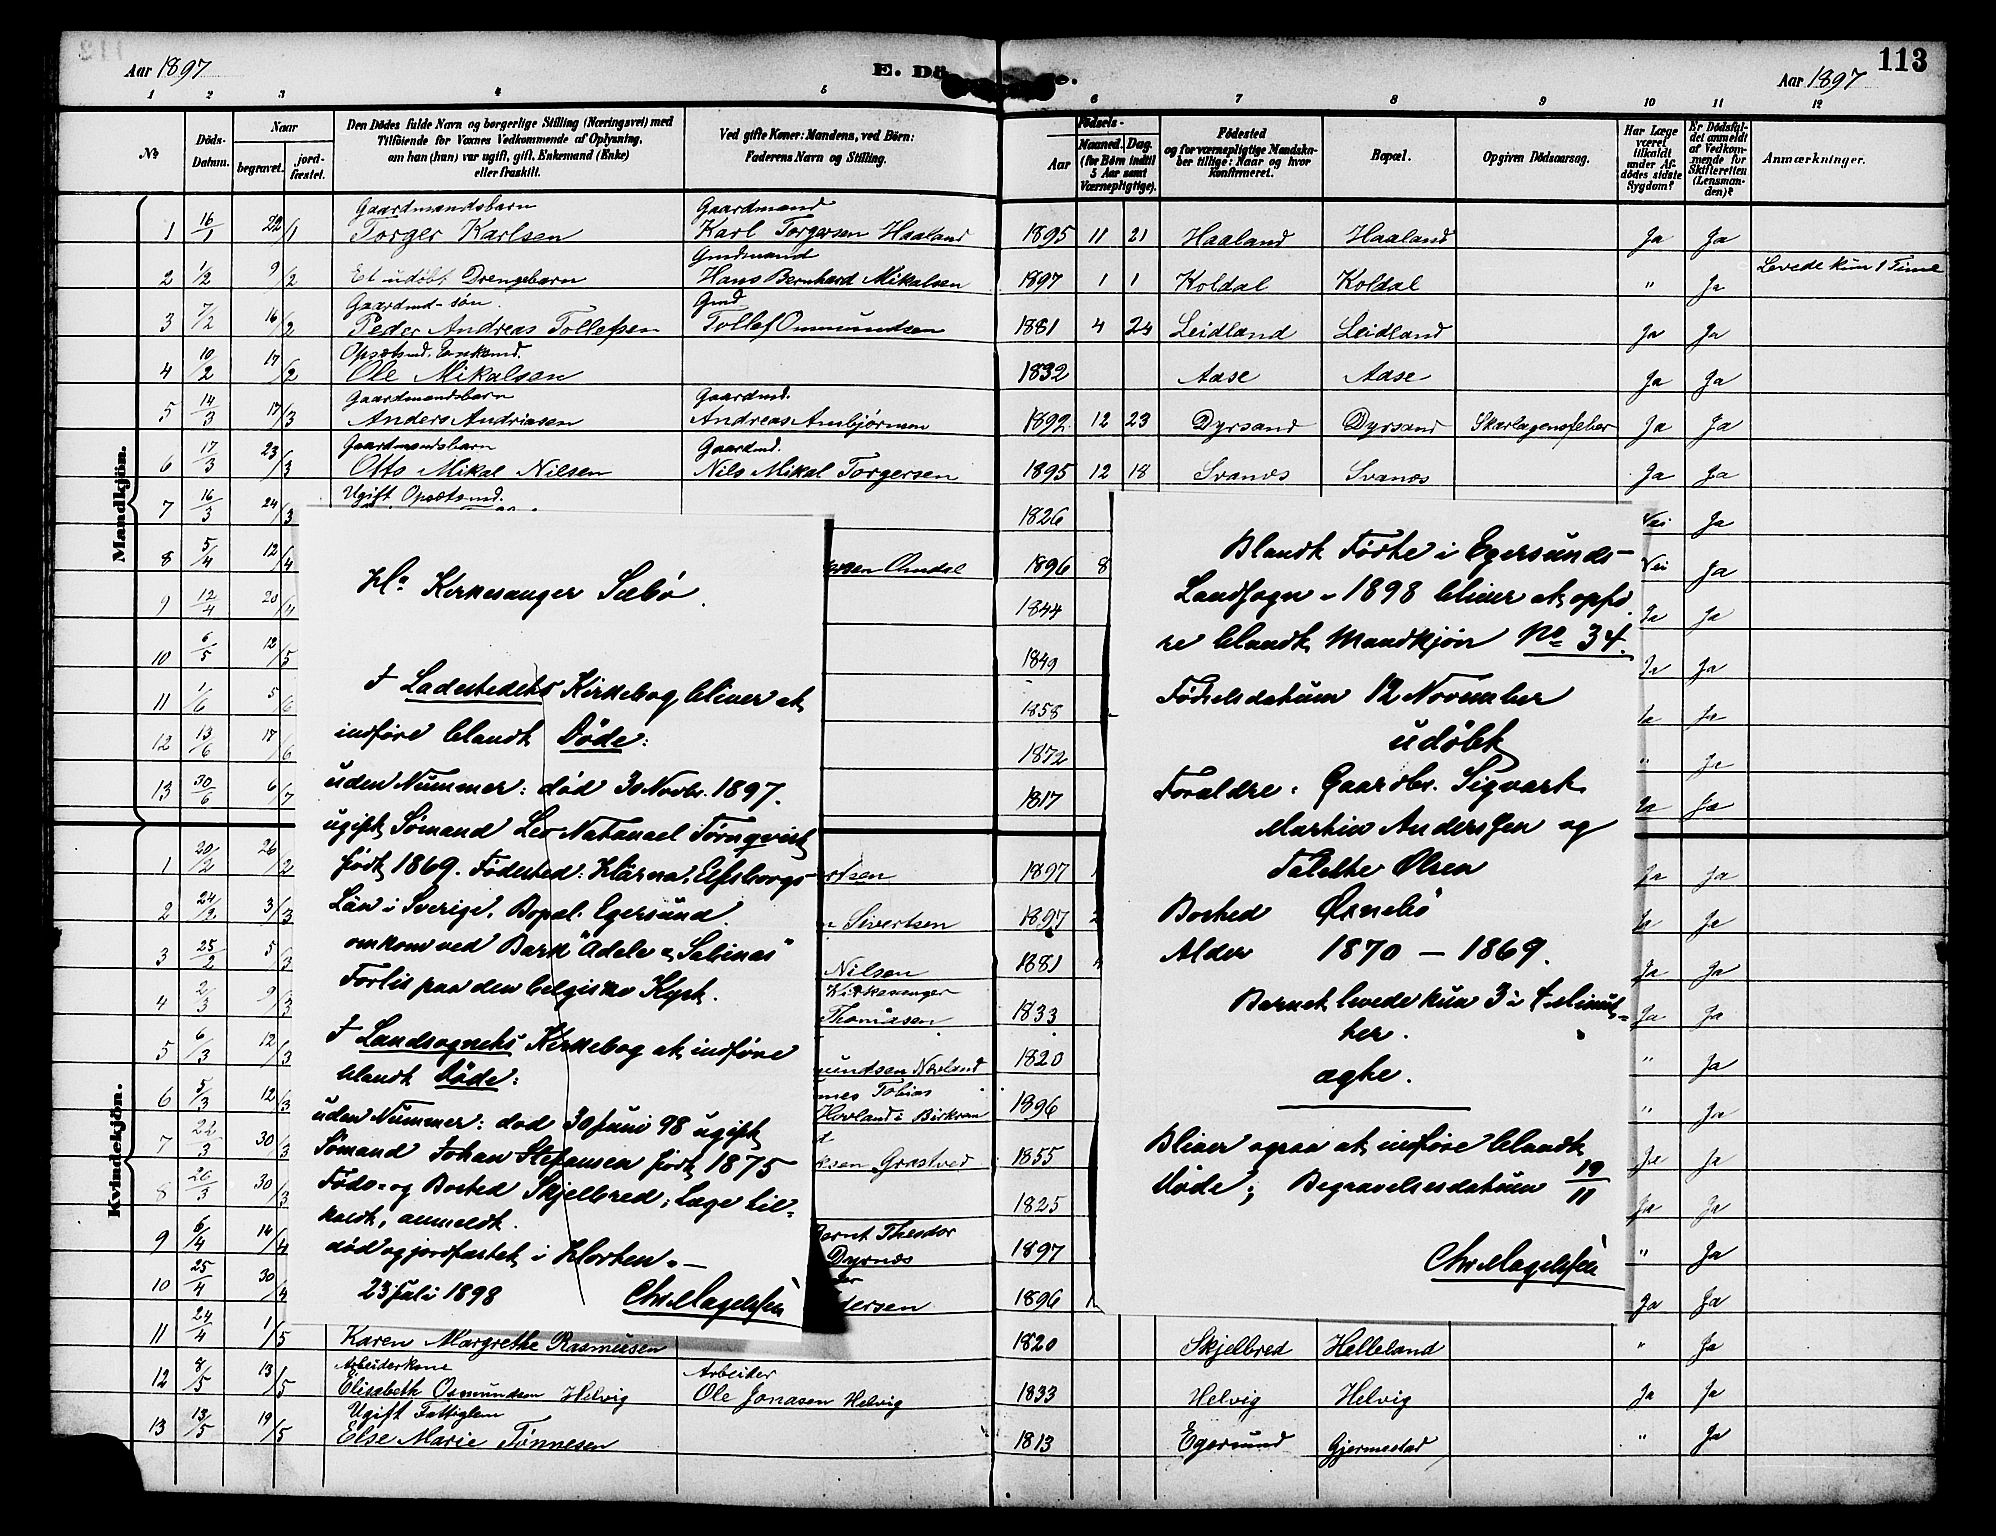 113
Aar 1897
E. Dö
Aar 1897
1 2 3 4 5 6 7 8 9 10 11 12
No
Döds-Datum.
Naar
begravet.
jord-fæstet.
Den Dödes fulde Navn og borgerlige Stilling (Næringsvei) med
Tilföiende for Voxnes Vedkommende af Oplysning,
om han (hun) var ugift, gift, Enkemand (Enke)
eller fraskilt.
Ved gifte Koner: Mandens, ved Börn:
Faderens Navn og Stilling.
Födsels-
Aar
Maaned. Dag.
(for Börn indtil
5 Aar samt
Værnepligtige).
Födested
og for værnepligtige Mandska-
ber tillige: Naar og hvor
konfirmeret.
Bopæl.
Opgiven Dödsaarsag.
Har Læge
været
tilkaldt
under Af-
dödes sidste
Sygdom?
Er Dödsfal-
det anmeldt
af Vedkom-
mende for
Skifteretten
(Lensman-
den)?
Anmærkninger.
Mandkjön.
Gaardmandsbarn Gaardmand
1 16/1 22/1 Torger Karlsen Karl Torgersen Haaland 1895 11 21 Haaland Haaland Ja Ja
Gmdmand
2 1/2 9/2 Et udøbt Drengebarn Hans Bernhard Mikalsen 1897 1 1 Koldal Koldal " Ja Levede kun 1 Time
Gaardmd-søn Gmd
3 7/2 16/2 Peder Andreas Tollefsen Tollef Ommundsen 1881 4 24 Leidland Leidland Ja Ja
Opsætsmd. Enkemd.
4 10/2 17/2 Ole Mikalsen 1832 Aase Aase Ja Ja
Gaardmandsbarn Gaardmd.
5 14/3 17/3 Anders Andriasen Andreas Ambjørnsen 1892 12 23 Dyrsand Dyrsand Skarlagensfeber Ja Ja
Gaardmandsbarn Gaardmd.
6 17/3 23/3 Otto Mikal Nilsen Nils Mikal Torgersen 1895 12 18 Svanes Svanes Ja Ja
Ugift Opsætsmd.
7 16/3 24/3 1826 Nei Ja
8 5/4 12/4 Omdal 1896 8 Nei Ja
9 12/4 20/4 1844 Ja Ja
10 6/5 12/5 1849 Ja Ja
11 1/6 5/6 1858 Ja Ja
12 13/6 17/6 1872 " Ja
13 30/6 6/7 1817 Ja Ja
Kvindekjön.
1 20/2 26/2 1897 Ja Ja
2 24/2 3/3 Sivertsen 1897 2 Ja Ja
3 25/2 5/3 Nilsen 1881 4 Ja Ja
Kirkesanger
4 2/3 9/3 Thomasen 1833 Ja Ja
5 6/3 12/3 mundsen Nesland 1820 " Ja
Tobias
6 5/3 12/3 Hovland i Birkrem 1896 " Ja
7 22/3 30/3 ksen Grastved 1855 Ja Ja
8 26/3 30/3 1825 Ja Ja
Bernt Theodor
9 6/4 14/4 Dyrnes 1897 " Ja
10 25/4 30/4 dersen 1896 Ja Ja
11 24/4 1/5 Karen Margrethe Rasmussen 1820 Skjelbred Helleland " Ja
Arbeiderkone Arbeider
12 8/5 13/5 Elisabeth Osmundsen Helvig Ole Jonasen Helvig 1833 Helvig Helvig Ja Ja
Ugift Fattiglem
13 13/5 19/5 Else Marie Tønnesen 1813 Egersund Gjermestad " Ja
Hr. Kirkesanger Sæbø.
I Ladestedets Kirkebog bliver at
indføre blandt Døde:
uden Nummer: død 30 Novbr. 1897.
ugift Sømand Leo Natanael Törnqvist
født 1869. Fødested: Klärna, Elfsborgs-
Län i Sverige. Bopæl: Egersund.
omkom ved Bark "Adele & Sabinas"
Forlis paa den belgiske Kyst.
I Landsognets Kirkebog at indføre
blandt Døde:
uden Nummer: død 30 Juni 98 ugift
Sømand Johan Stefansen født 1875
Føde- og Bosted Skjelbred; Læge til-
kaldt, anmeldt.
død og jordfæstet i Horten. —
23 Juli 1898 Chr. Magelssen
Blandt Fødte i Egersunds-
Landsogn - 1898 bliver at opfø-
re blandt Mandkjøn No 34.
Fødselsdatum 12 November
udøbt
Forældre: Gaardbr. Sigvart
Martin Anderssen og
Talette Olsen
Bosted Ørnebø
Alder 1870 — 1869.
Barnet levede kun 3 à 4 Minut-
ter.
ægte.
Bliver ogsaa at indføre blandt
døde; Begravelsesdatum 19/11
Chr. Magelssen